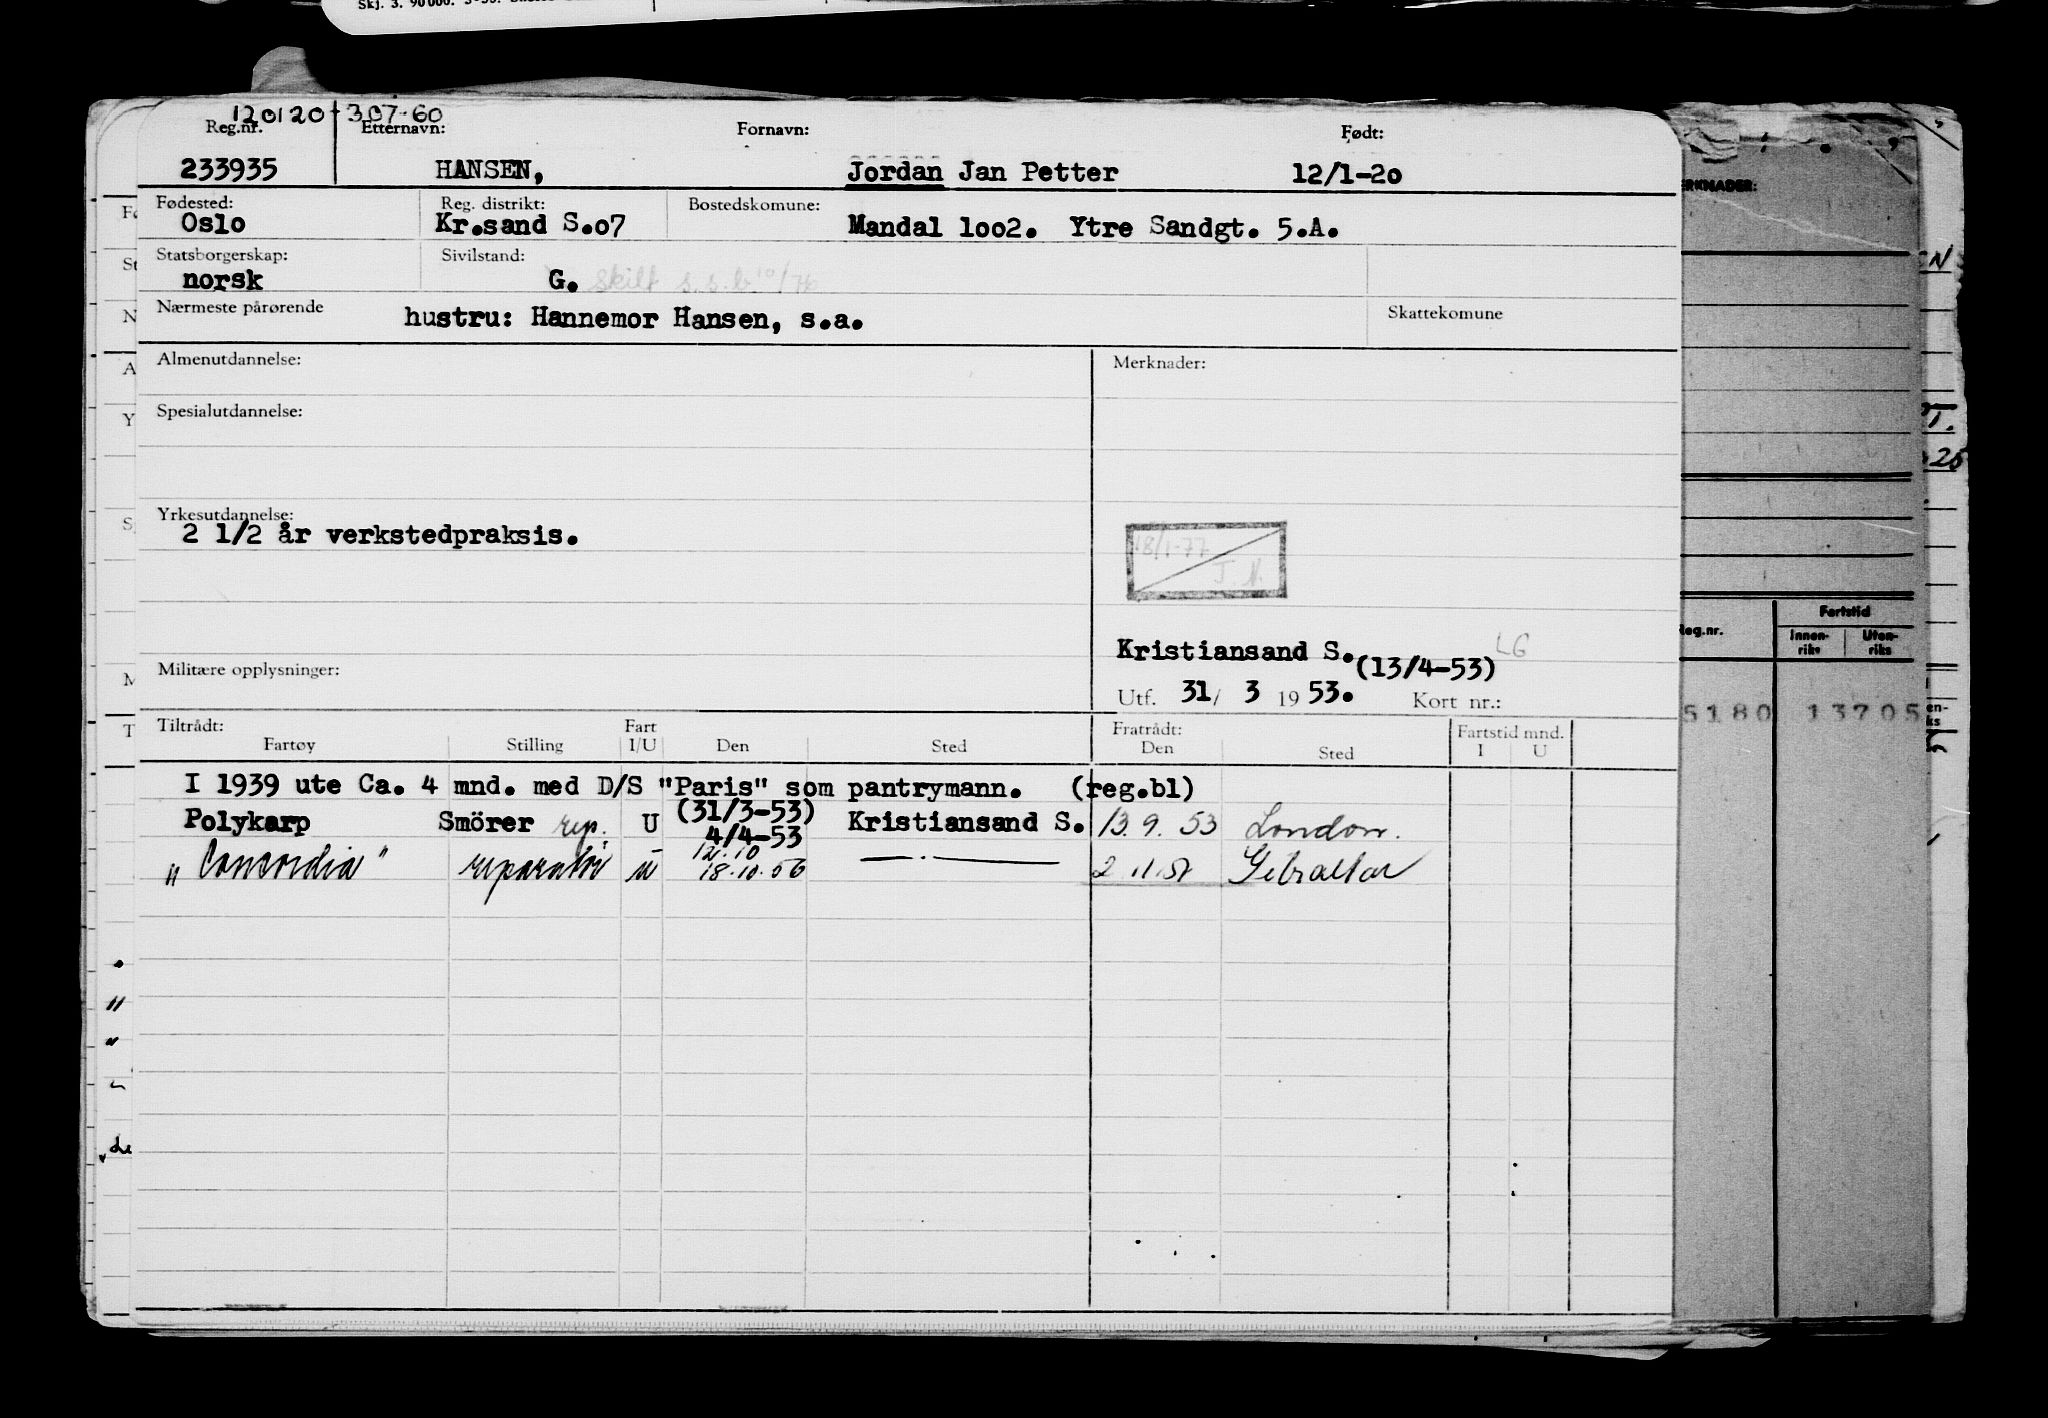 Skj. 3. 90 000.
120120-307-60
Reg.nr. Etternavn: Fornavn: Født:
233935 HANSEN, Jordan Jan Petter 12/1-20
Fødested: Reg. distrikt: Bostedskomune:
Oslo Kr.sand S.o7 Mandal loo2. Ytre Sandgt. 5.A.
Statsborgerskap: Sivilstand:
norsk G. skilt s.s.b 10/76
Nærmeste pårørende hustru: Hannemor Hansen, s.a. Skattekomune
Almenutdannelse: Merknader:
Spesialutdannelse:
Yrkesutdannelse:
2 1/2 år verkstedpraksis.
18/1-77
J. N.
Kristiansand S. (13/4-53) LG
Militære opplysninger:
Utf. 31/ 3 19 53. Kort nr.:
Tiltrådt: Fart Fratrådt: Fartstid mnd.
Fartøy Stilling I/U Den Sted Den Sted I U
I 1939 ute Ca. 4 mnd. med D/S "Paris" som pantrymann. (reg.bl)
Polykarp Smörer rep. U (31/3-53) 4/4-53 Kristiansand S. 13.9.53 London.
"Concordia" reparatör u 12.10 18.10.56 —.— Gibraltar
ERKNADER:
N
T.
25
Reg.nr. Fartstid
Innen-riks Uten-riks
5180 13705